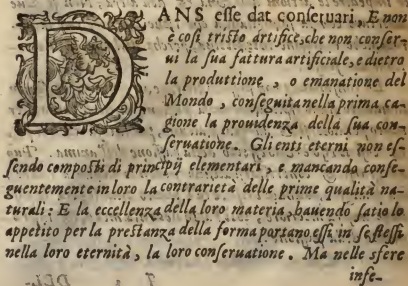 DANS esse dat conseruari, E non
è così tristo artifice, che non conser-
ui la sua fattura artificiale, e dietro
la produttione, o emanatione del
Mondo, conseguita nella prima ca-
gione la prouidenza della sua con-
seruatione. Gli enti eterni non es-
sendo composti di principij elementari, e mancando conse-
guentemente in loro la contrarietà delle prime qualità na-
turali: E la eccellenza della loro materia, hauendo satio lo
appetito per la prestanza della forma portano essi in se stessi
nella loro eternità, la loro conseruatione. Ma nelle sfere
infe-